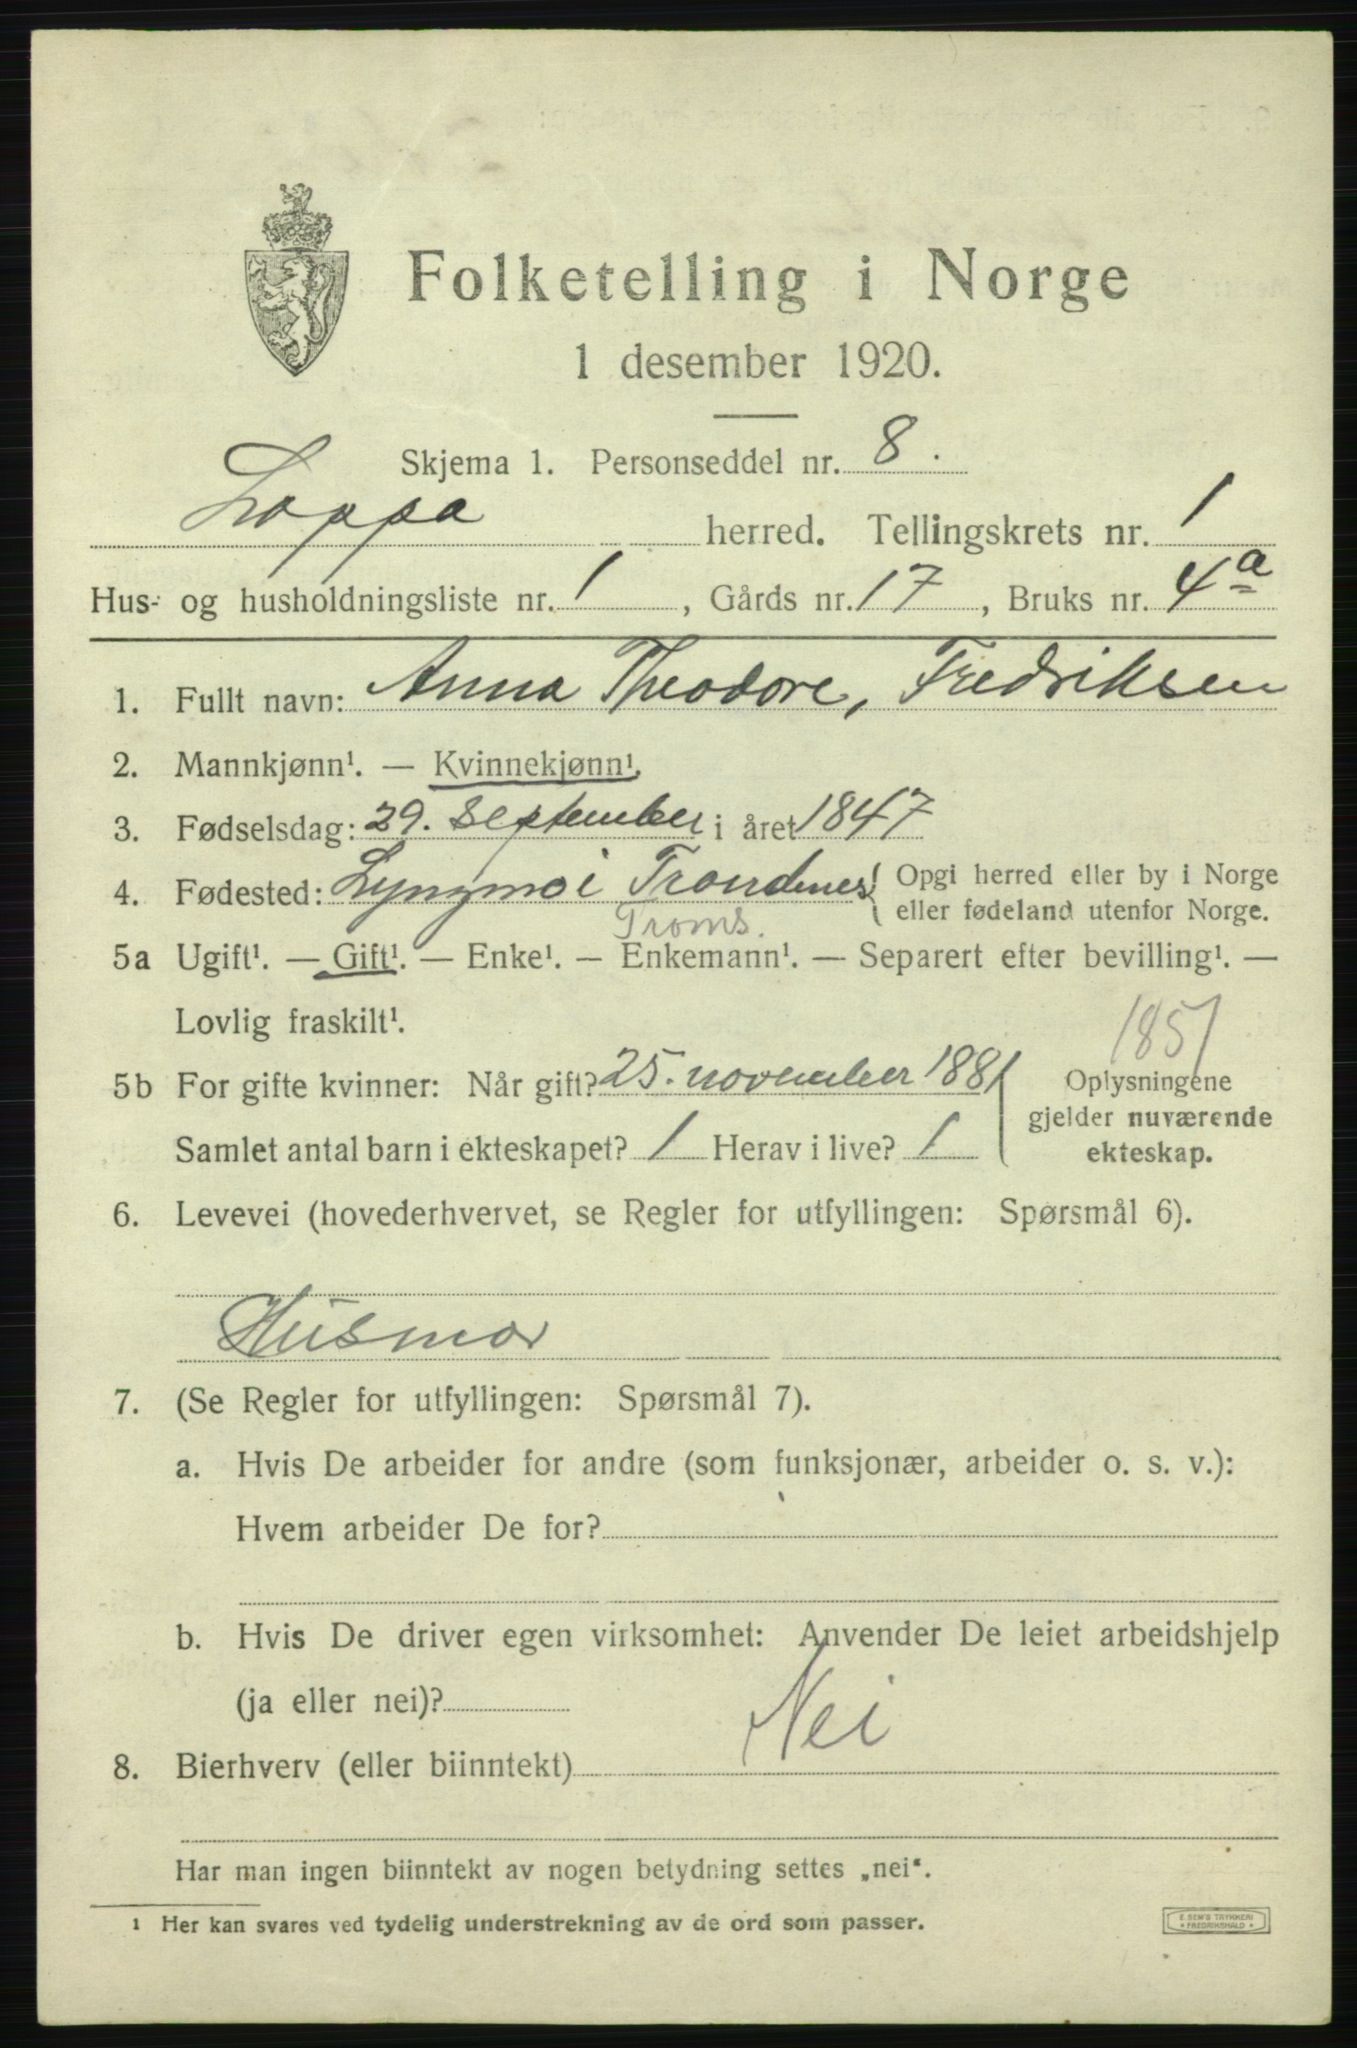 Folketelling i Norge
1 desember 1920.
Skjema 1. Personseddel nr. 8.
Loppa herred. Tellingskrets nr. 1
Hus- og husholdningsliste nr. 1, Gårds nr. 17, Bruks nr. 4a
1. Fullt navn: Anna Theodore, Fredriksen
2. Mannkjønn¹. — Kvinnekjønn¹.
3. Fødselsdag: 29. september i året 1847
4. Fødested: Lyngmo i Trondenes { Opgi herred eller by i Norge
Troms. eller fødeland utenfor Norge.
5a Ugift¹. — Gift¹. — Enke¹. — Enkemann¹. — Separert efter bevilling¹. —
Lovlig fraskilt¹.
1851
5b For gifte kvinner: Når gift? 25. november 1881 Oplysningene
gjelder nuværende
Samlet antal barn i ekteskapet? 1 Herav i live? 1 ekteskap.
6. Levevei (hovederhvervet, se Regler for utfyllingen: Spørsmål 6).
Husmor
7. (Se Regler for utfyllingen: Spørsmål 7).
a. Hvis De arbeider for andre (som funksjonær, arbeider o. s. v.):
Hvem arbeider De for?
b. Hvis De driver egen virksomhet: Anvender De leiet arbeidshjelp
(ja eller nei)?
8. Bierhverv (eller biinntekt) Nei
Har man ingen biinntekt av nogen betydning settes „nei“.
1 Her kan svares ved tydelig understrekning av de ord som passer.
E. SEM'S TRYKKERI
• FREDRIKSHALD •